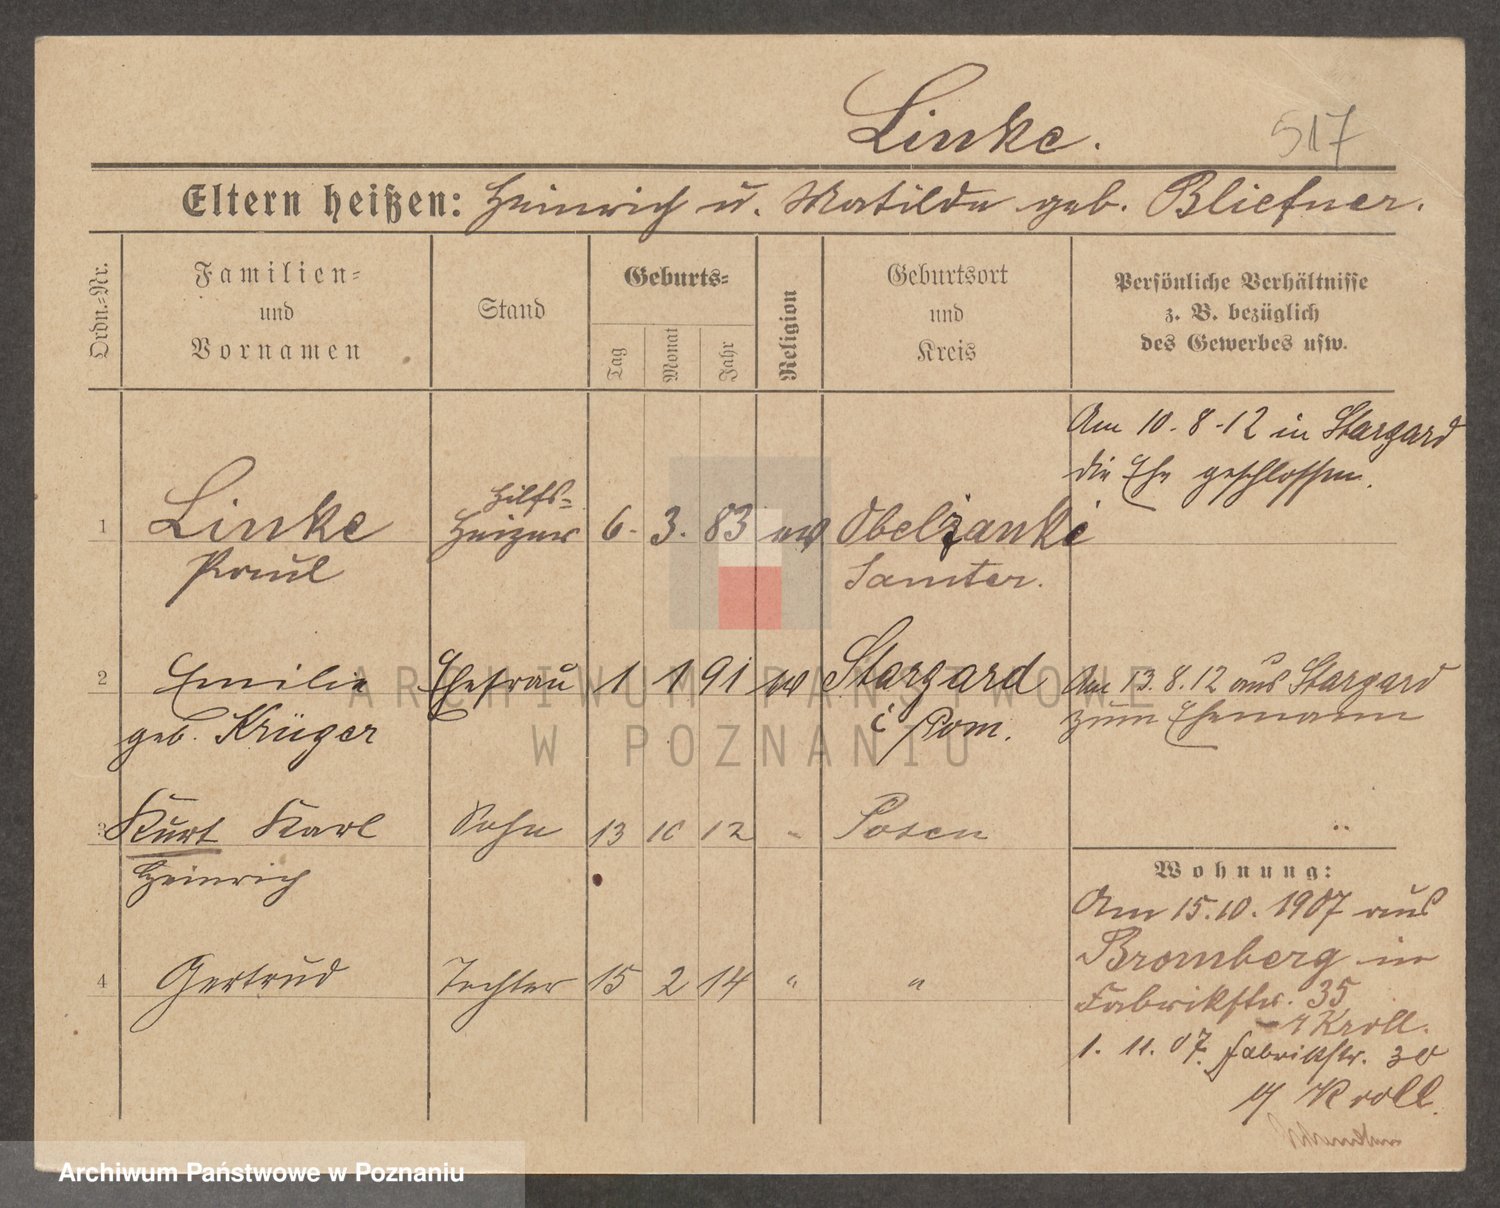 Linke.
517
Eltern heißen: Heinrich u. Matilde geb. Bliefner.
Ordn.-Nr.
Familien-
und
Vornamen
Stand
Geburts-
Tag
Monat
Jahr
Religion
Geburtsort
und
Kreis
Persönliche Verhältnisse
z. B. bezüglich
des Gewerbes usw.
Am 10.8.12 in Stargard
die Ehe geschlossen.
1 Linke Hilfs-
Heizer 6. 3. 83 ev Obelzanki
Paul Samter.
2 Emilie Ehefrau 1 1 91 ev Stargard Am 13.8.12 aus Stargard
geb. Krüger i Pom. zum Ehemann
3 Kurt Karl Sohn 13 10 12 " Posen
Heinrich
Wohnung:
Am 15.10.1907 aus
Bromberg in
4 Gertrud Tochter 15 2 14 " "
Fabrikstr. 35
Kroll.
1. 11. 07. Fabrikstr. 30
Kroll.
ARCHIWUM PAŃSTWOWE
W POZNANIU
Archiwum Państwowe w Poznaniu